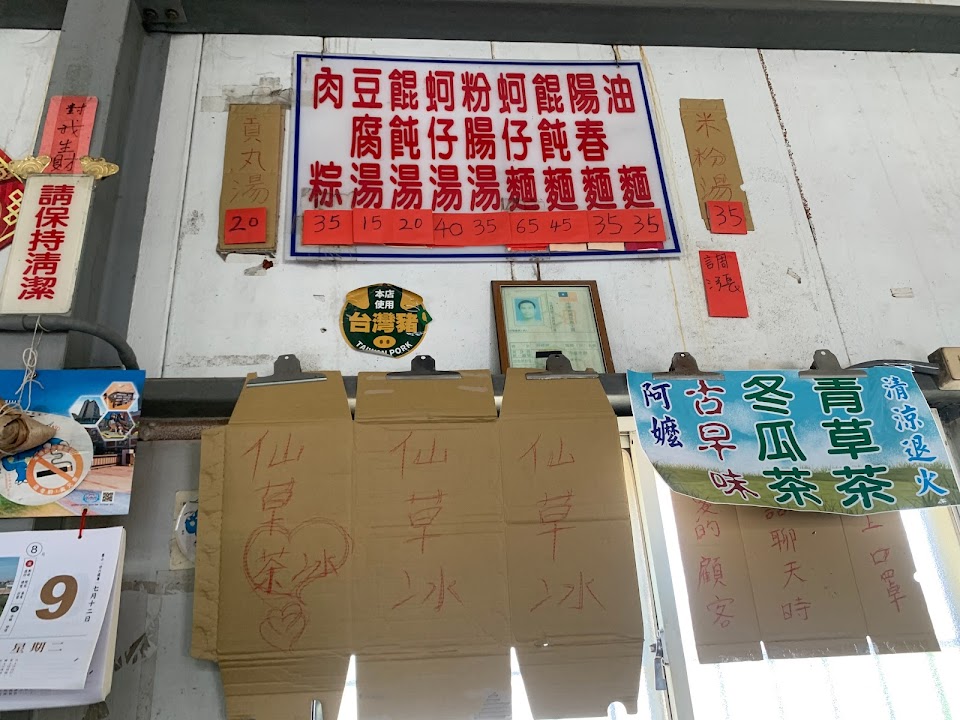 對我生財
請保持清潔
貢丸湯
20
油麵 35
陽春麵 35
餛飩麵 45
蚵仔麵 65
粉腸湯 35
蚵仔湯 40
餛飩湯 20
豆腐湯 15
肉粽 35
米粉湯
35
調漲
本店
使用
台灣豬
TAIWAN PORK
清涼退火
青草茶
冬瓜茶
古早味
阿嬤
仙草冰
仙草冰
仙草茶冰
上口罩
聊天時
的顧客
8
9
七月十二日
星期二